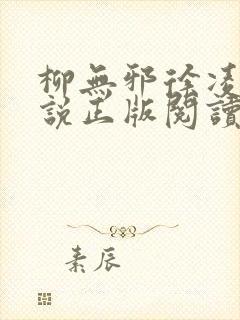 柳無邪徐凌
說正版閱讀
素辰